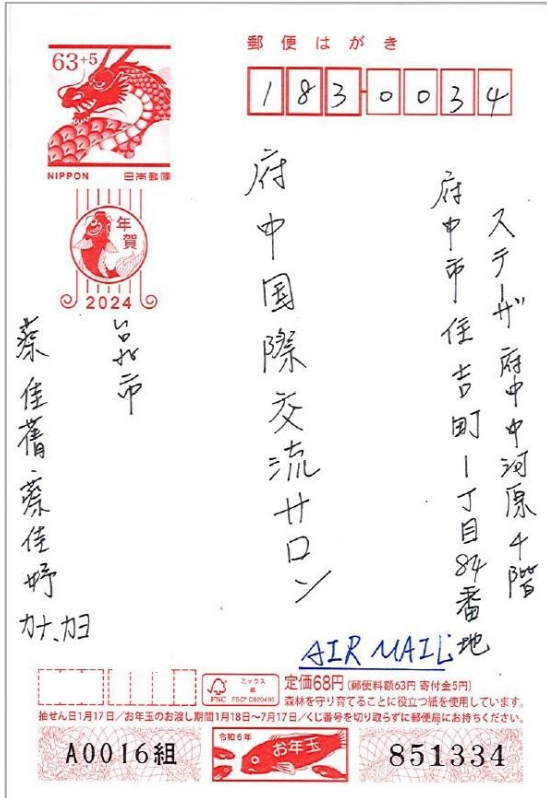 郵便はがき
63+5
NIPPON 日本郵便
年賀
2024
183-0034
ステーザ府中中河原4階
府中市住吉町1丁目84番地
府中国際交流サロン
台北市
蔡佳蒨 蔡佳妤
カナ、カヨ
AIR MAIL
ミックス
紙
FSC FSC® C020495
定価68円(郵便料額63円 寄付金5円)
森林を守り育てることに役立つ紙を使用しています。
抽せん日1月17日/お年玉のお渡し期間1月18日~7月17日/くじ番号を切り取らずに郵便局にお持ちください。
A0016組
令和6年
お年玉
851334